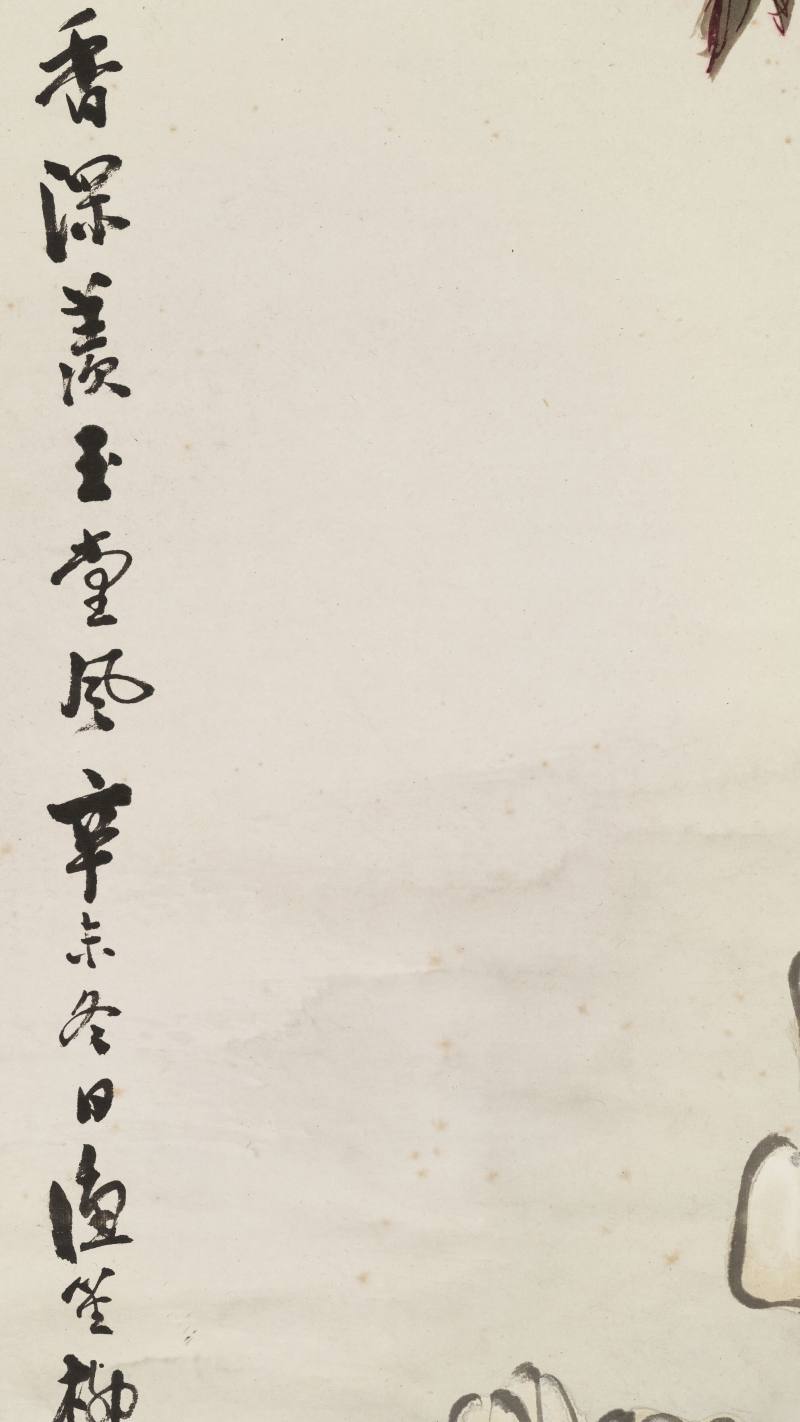 香深羨玉堂風辛未冬日漁笙柳